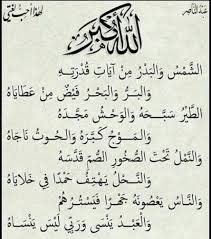 لهذا أحب الفتى
عبد الناصر
الله أكبر
الشَّمْسُ وَالبَدْرُ مِنْ آيَاتِ قُدْرَتِهِ
وَالبَرُّ وَالبَحْرُ فَيْضٌ مِنْ عَطَايَاهُ
الطَّيْرُ سَبَّحَهُ وَالوَحْشُ مَجَّدَهُ
وَالمَوْجُ كَبَّرَهُ وَالحُوتُ نَاجَاهُ
وَالنَّمْلُ تَحْتَ الصُّخُورِ الصُّمِّ قَدَّسَهُ
وَالنَّحْلُ يَهْتِفُ حَمْدًا فِي خَلَايَاهُ
وَالنَّاسُ يَعْصُونَهُ جَهْرًا فَيَسْتُرُهُمْ
وَالعَبْدُ يَنْسَى وَرَبِّي لَيْسَ يَنْسَاهُ